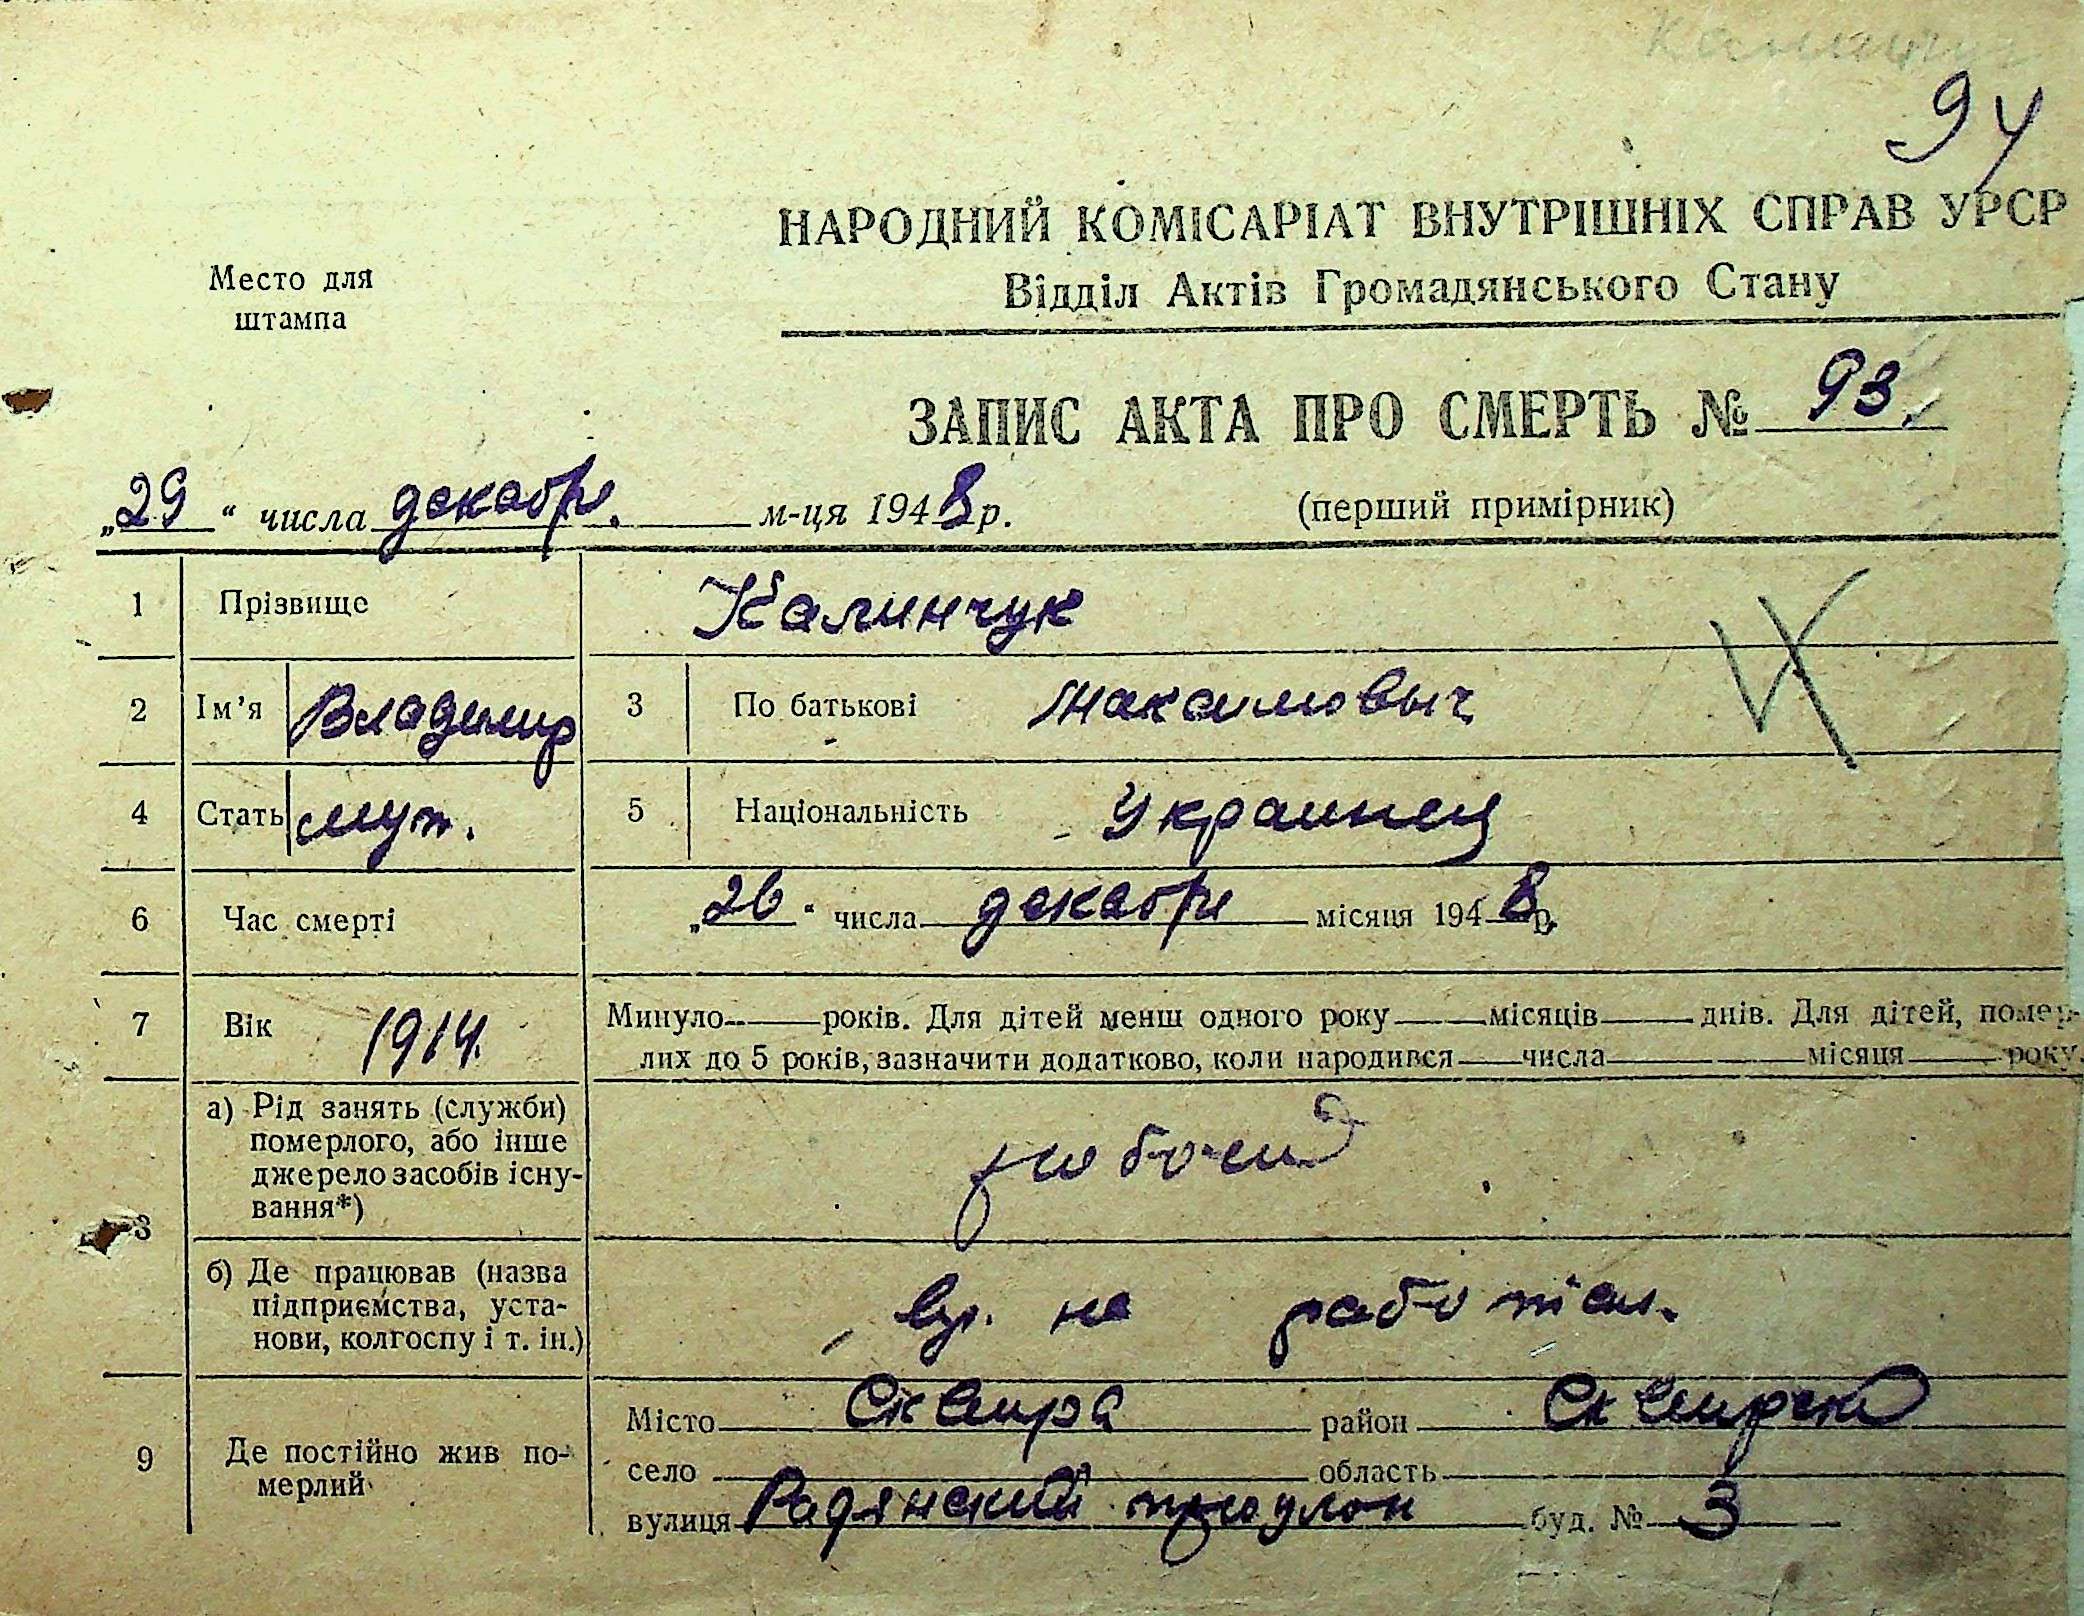 94
НАРОДНИЙ КОМІСАРІАТ ВНУТРІШНІХ СПРАВ УРСР
Відділ Актів Громадянського Стану
Место для
штампа
ЗАПИС АКТА ПРО СМЕРТЬ № 93.
„29“ числа декабря. м-ця 1948 р.
(перший примірник)
1 Прізвище Калинчук
2 Ім’я Владимир 3 По батькові Максимовыч
4 Стать муж. 5 Національність Украинец
6 Час смерті „26“ числа декабря місяця 1948 р.
7 Вік 1914. Минуло років. Для дітей менш одного року місяців днів. Для дітей, помер-
лих до 5 років, зазначити додатково, коли народився числа місяця року.
8 а) Рід занять (служби)
померлого, або інше
джерело засобів існу-
вання*)
рабочий
б) Де працював (назва
підприємства, уста-
нови, колгоспу і т. ін.)
вр. не работал.
9 Де постійно жив по-
мерлий
Місто Сквира район Сквирский
село область
вулиця Радянский буд. № 3